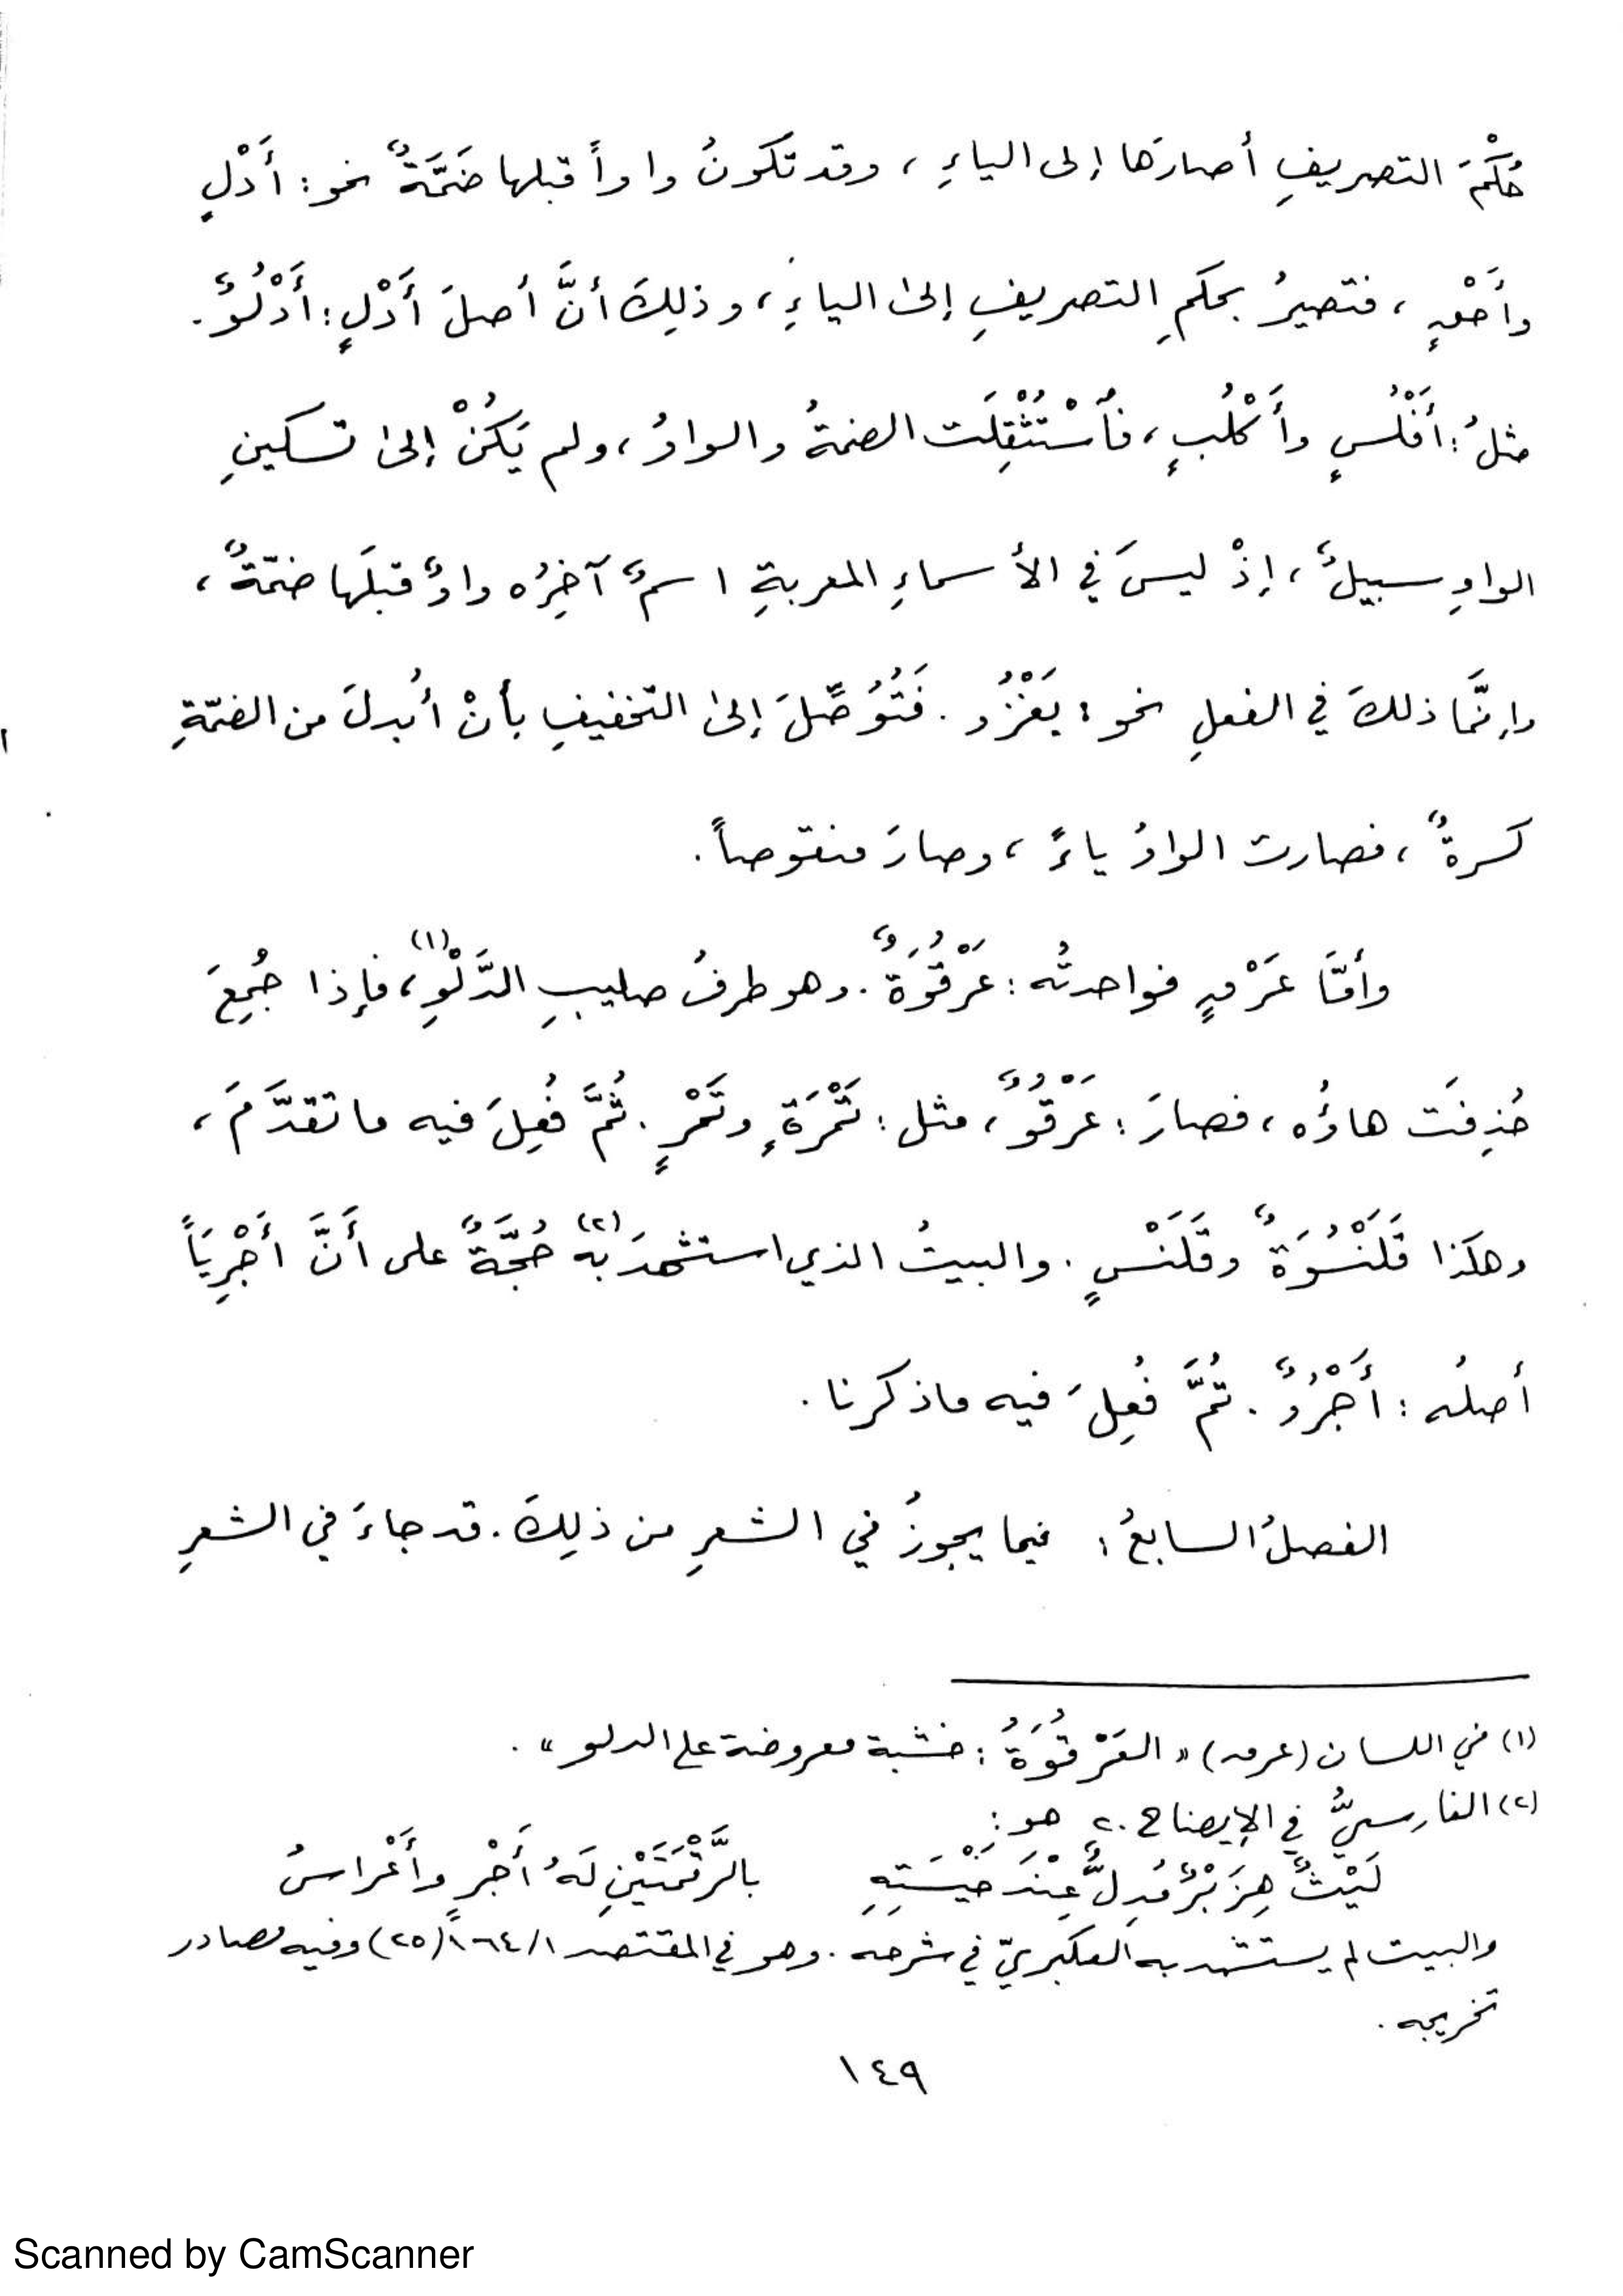 حُكْمَ التصريفِ أصارَها إلى الياءِ ، وقد تكونُ واواً قبلها ضَمَّةٌ نحو : أَدْلٍ
وأَحْقٍ ، فتصيرُ بحكمِ التصريفِ إلى الياءِ ، وذلِكَ أنَّ أصلَ أَدْلٍ : أَدْلُوٌ .
مثلُ : أَفْلُسٍ وأَكْلُبٍ ، فٱسْتُثْقِلَت الضمةُ والواوُ ، ولم يَكُنْ إلى تسكينِ
الواوِ سبيلٌ ، إذْ ليسَ في الأسماءِ المعربةِ اسمٌ آخِرُه واوٌ قبلَها ضمّةٌ ،
وإنَّما ذلكَ في الفعلِ نحو : يَغْزُو . فَتُوُصِّلَ إلى التخفيفِ بأنْ أُبدلَ من الضمّةِ
كسرةٌ ، فصارت الواوُ ياءً ، وصارَ منقوصاً .
وأمَّا عَرْقٍ فواحدتُه : عَرْقُوَةٌ . وهو طرفُ صليبِ الدَّلْوِ (١) ، فإذا جُمِعَ
حُذِفَت هاؤُه ، فصارَ : عَرْقُوٌ ، مثل : تَمْرَةٍ وتَمْرٍ . ثُمَّ فُعِلَ فيه ما تقدَّمَ ،
وهكذا قَلَنْسُوَةٌ وقَلَنْسٍ . والبيتُ الذي استشهدَ به (٢) حُجَّةٌ على أَنَّ أَجْرِيَاً
أصلُه : أَجْرُوٌ . ثُمَّ فُعِلَ فيه ما ذكرنا .
الفصلُ السابعُ : فيما يجوزُ في الشعرِ من ذلِكَ . قد جاءَ في الشعرِ
(١) في اللسان (عرق) « العَرْقُوَةُ : خشبة معروضة على الدلو » .
(٢) الفارسيُّ في الإيضاح ٢٠ هو :
لَيْثٌ هِزَبْرٌ مُدِلٌّ عِنْدَ خَيْسَتِهِ بالرَّقْمَتَيْنِ لَهُ أَجْرٍ وأَعْراسُ
والبيت لم يستشهد به العكبريّ في شرحه . وهو في المقتصد ١/١٦٤ (٢٥) وفيه مصادر
تخريجه .
١٤٩
Scanned by CamScanner